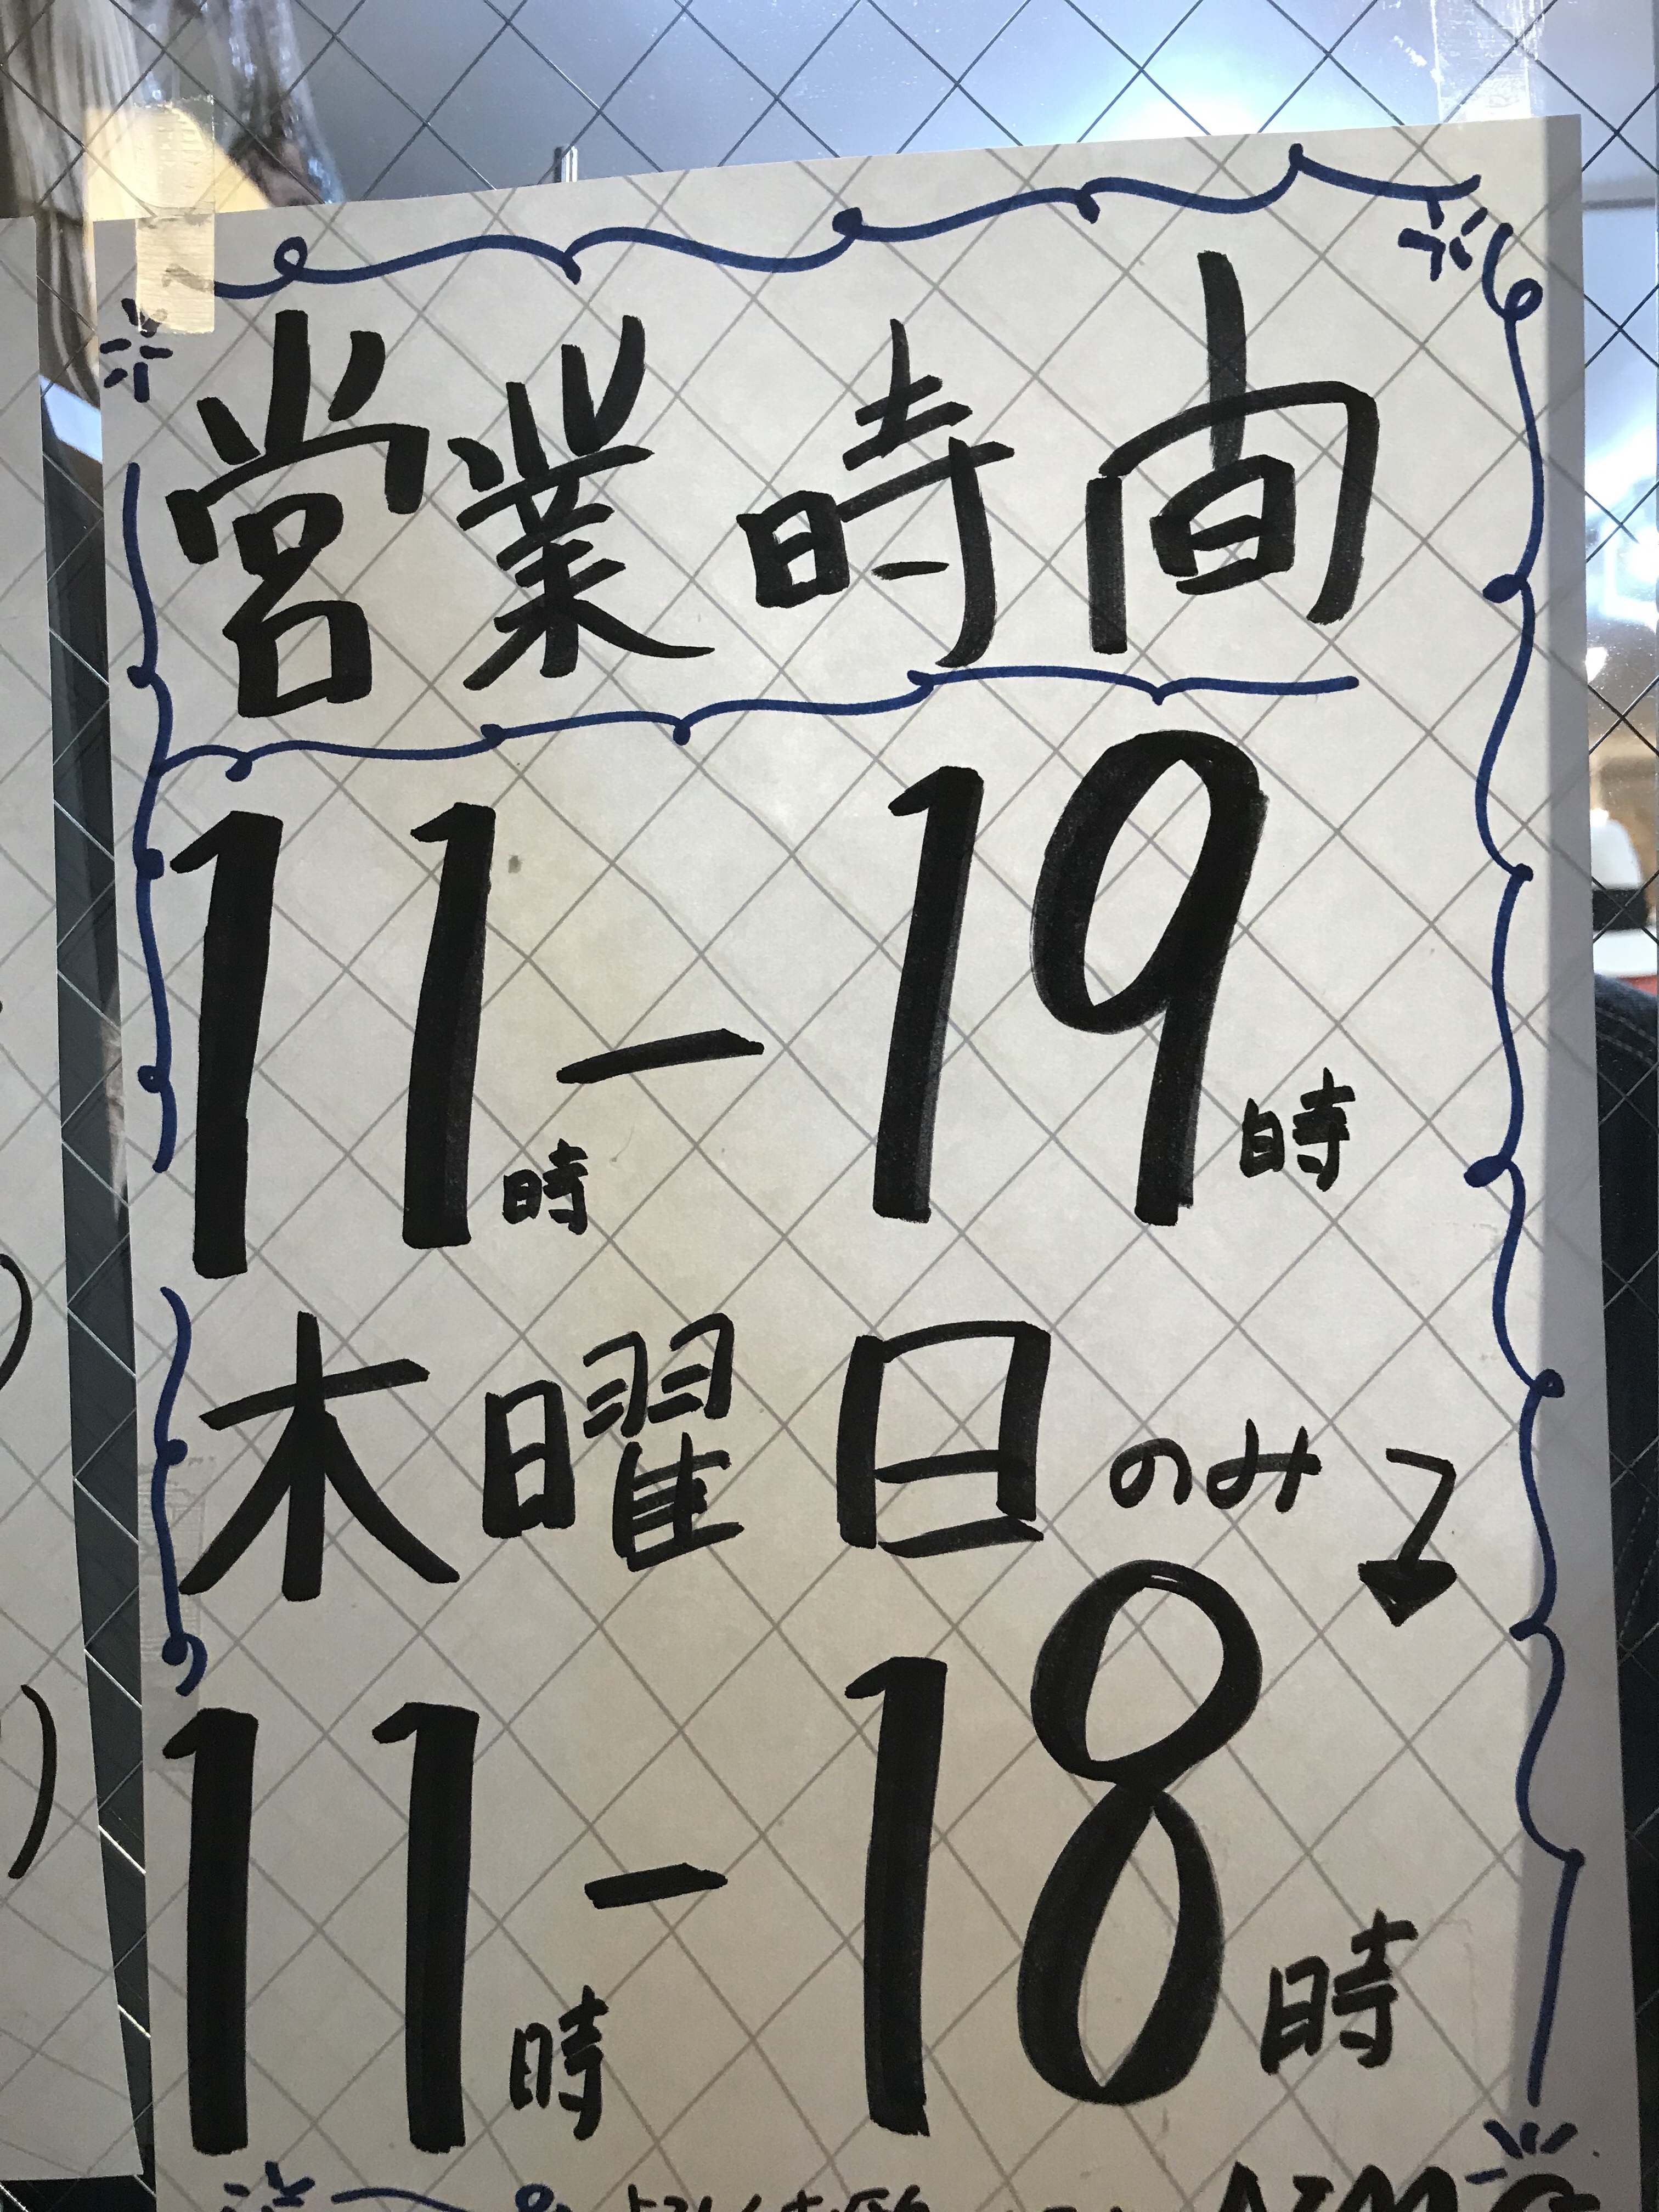 営業時間
11時ー19時
木曜日のみ
11時ー18時